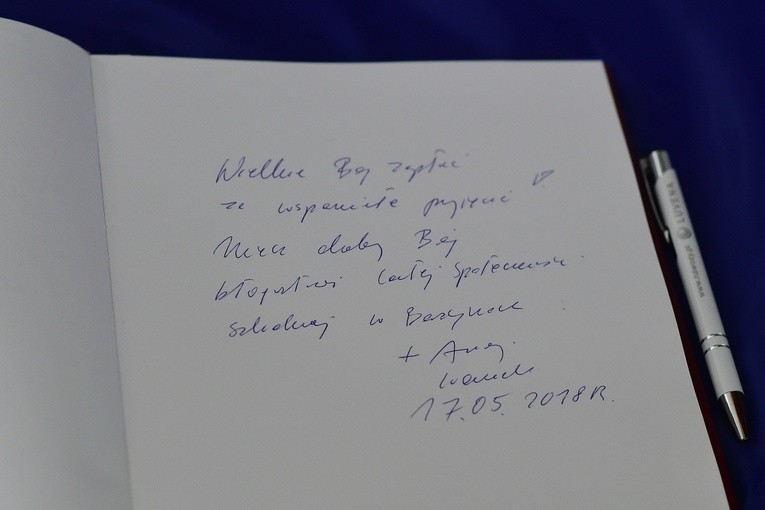 Wielkie Bóg zapłać
za wspaniałe przyjęcie
Niech dobry Bóg
błogosławi całej Społeczności
Szkolnej w
+ Andrzej
17.05.2018 R.
LUVENA